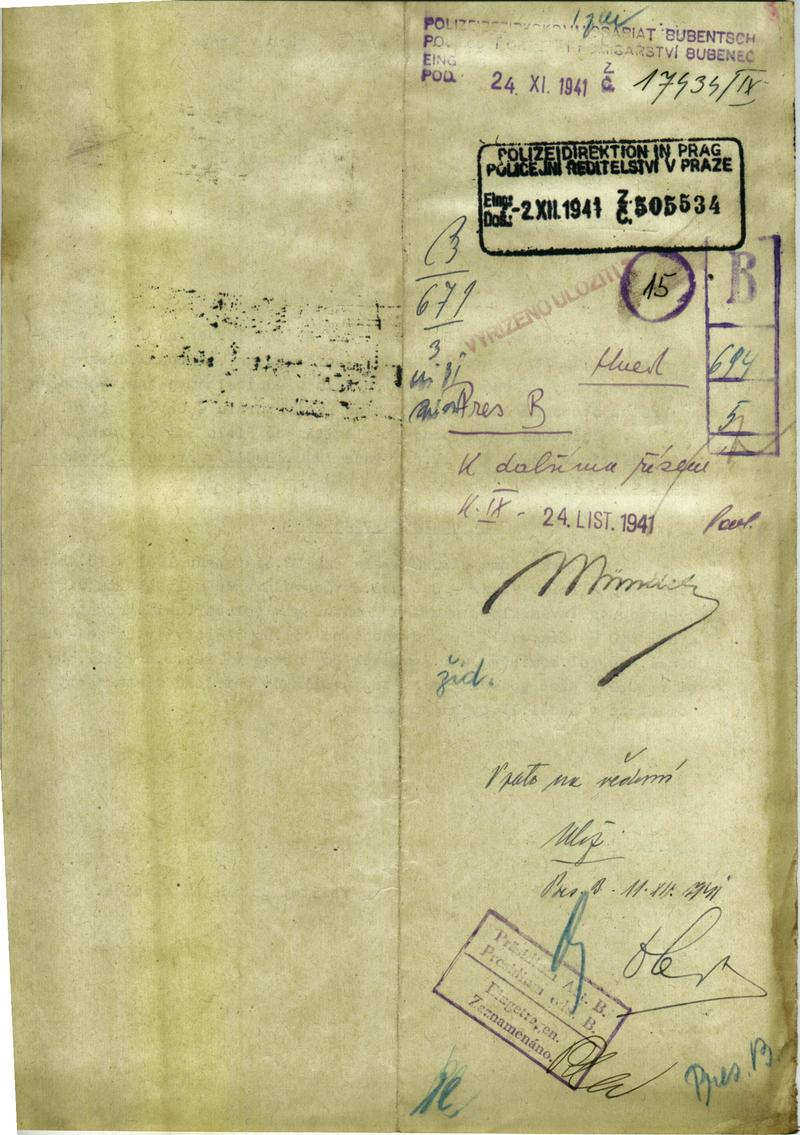 POLIZEIBEZIRKSKOMMISSARIAT BUBENTSCH
KOMISAŘSTVÍ BUBENEČ
EING
POD. 24. XI. 1941 Z Č. 17434/IX
POLIZEIDIREKTION IN PRAG
POLICEJNÍ ŘEDITELSTVÍ V PRAZE
Eing:
Doš.: -2.XII.1941 Z. Č. 505534
B
671
3
VYŘÍZENO ULOŽITI
15
B
694
5
Ihned
Pres B
K dalšímu řízení
K. IX - 24. LIST. 1941
žid.
Vzato na vědomí
Ulož.
Pres. B - 11. XII. 1941
Präsidium Abt. B.
Presidium odd. B.
Eingetragen.
Zaznamenáno.
Pres. B.